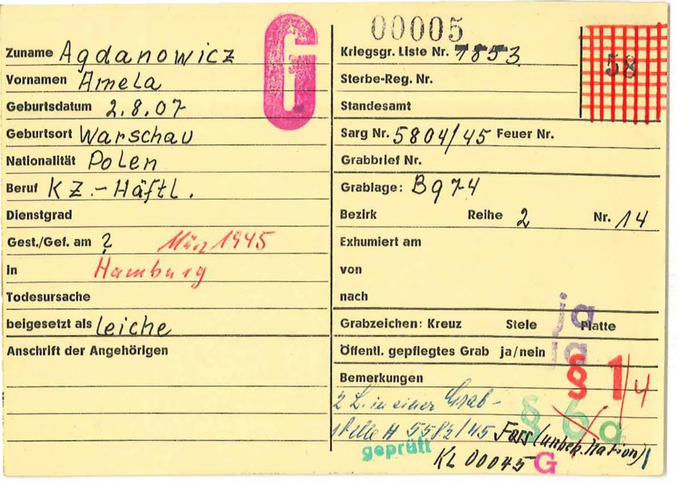 G
00005
58
Zuname Agdanowicz
Vornamen Amela
Geburtsdatum 2.8.07
Geburtsort Warschau
Nationalität Polen
Beruf KZ.-Häftl.
Dienstgrad
Gest./Gef. am ? März 1945
in Hamburg
Todesursache
beigesetzt als Leiche
Anschrift der Angehörigen
Kriegsgr. Liste Nr. 7853
Sterbe-Reg. Nr.
Standesamt
Sarg Nr. 5804/45 Feuer Nr.
Grabbrief Nr.
Grablage: Bq 74
Bezirk Reihe 2 Nr. 14
Exhumiert am
von
nach
Grabzeichen: Kreuz Stele Platte
ja
Öffentl. gepflegtes Grab ja/nein
ja
Bemerkungen
§ 1/4
2 L. in einer Grab-
stelle # 5582/45
§ 6 a
(unbek. Nation)
geprüft
KL 00045 G